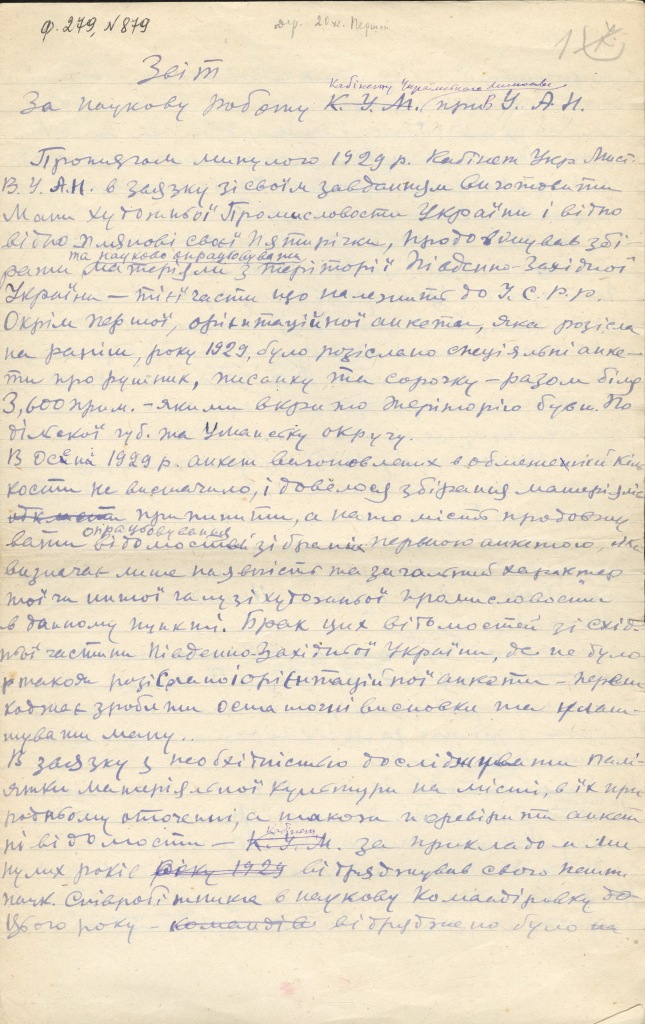 Ф. 279, № 879
Звіт
Кабінету Українського Мистецтва
За наукову роботу К. У. М. при В У. А. Н.
Протягом минулого 1929 р. Кабінет Укр Мист.
В. У. А. Н. в звязку зі своїм завданням виготовити
Мапи художньої Промисловости України і відпо
відно плянові своєї пятирічки, продовжував збі-
та науково опрацьовувати
рати матеріяли з теріторії Південно-Західної
України — тієї части що належить до У. С. Р. Р.
Окрім першої, орієнтаційної анкети, яка розісла
на раніш, року 1929, було розіслано спеціяльні анке-
ти про рушник, писанку та сорочку — разом біля
3,600 прим. — якими вкрито теріторію бувш. По
дільської губ. та Уманську округу.
В Осени 1929 р. анкет виготовлених в обмеженій Кіль
кости не вистачило, і довелося збірання матеріялів
припинити, а натомість продовжу
опрацьовування
вати відомостей зібраних першою анкетою, яка
визначає лише наявність та загальний характер
тої чи иншої галузі художньої промисловости
в данному пункті. Брак цих відомостей зі схід-
ньої частини Південно-Західної України, де не було
також розісланої орієнтаційної анкети — переш
коджає зробити остаточні висновки та
тувати мапу..
В звязку з необхідністью досліджувати пам-
ятки матеріяльної культури на місті, в їх при
родньому оточенні, а також перевірити анкет
Кабінет
ні відомости — К. У. М. за прикладом ми
нулих років року 1929 відряджував свого
наук. Співробітника в наукову Командіровку до
Цього року — командів відряджено було на